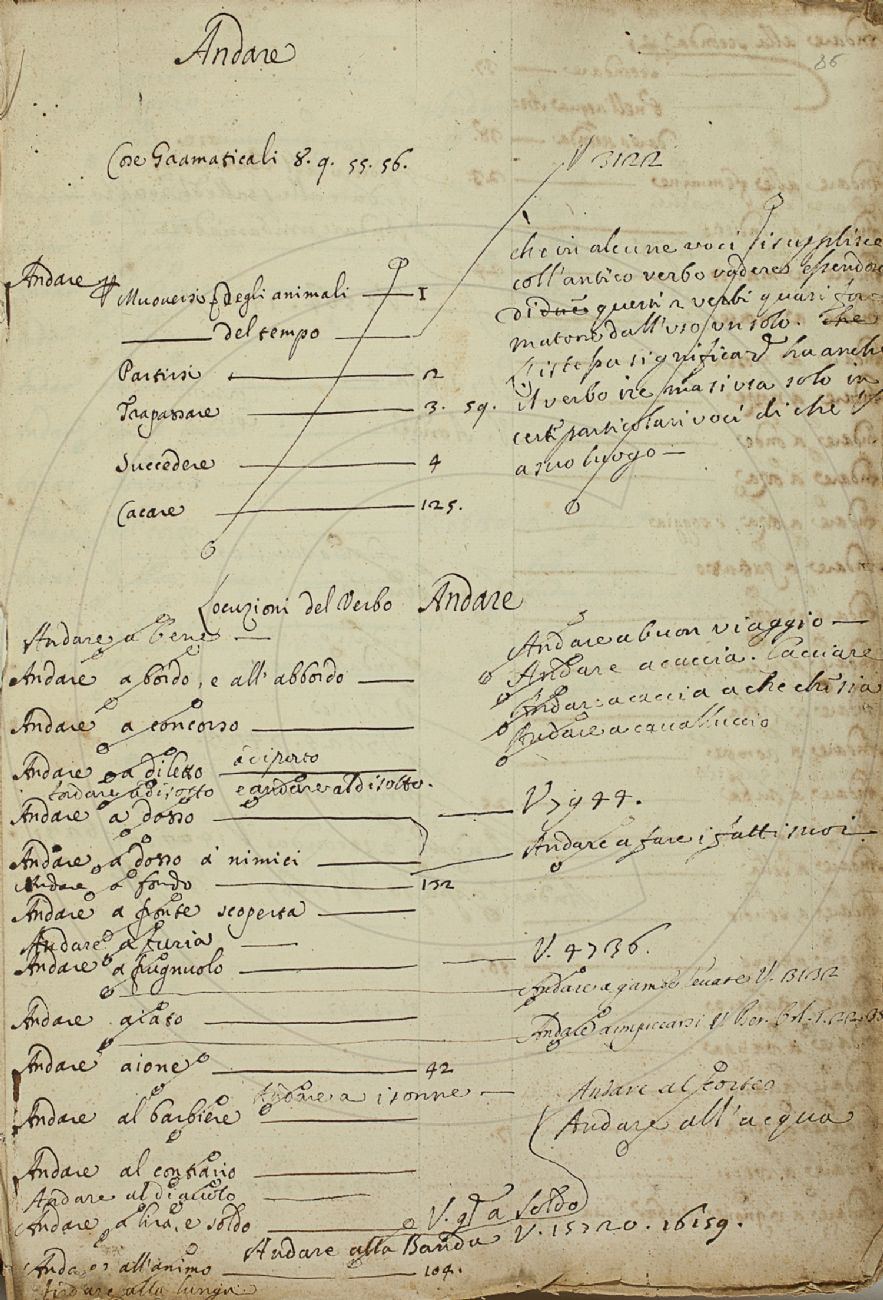 Andare
86
Cose Gramaticali 8. q. 55. 56.
V 3122
Andare Muoversi Degli animali 1
del tempo
Partirsi 2
Trapassare 3. 59.
Succedere 4
Cacare 125.
che in alcune voci si supplisce
coll'antico verbo vadere essendosi
di due questi 2 verbi quasi
matone dall'uso un solo. Che
significa ha anche
il verbo ire ma si usa solo in
certe particolari voci di che
a suo luogo
Locuzioni del Verbo Andare
Andare a bene
Andare a buon viaggio
Andare a bordo, e all'abbordo
Andare a caccia. Cacciare
Andar a caccia a che che sia
Andare a concorso
Andare a cavalluccio
Andare a diletto
Andare a disotto e andare al disotto.
Andare a dosso
V 7944.
Andare a dosso a' nimici
Andare a fare i fatti suoi
Andare a fondo 132
Andare a fronte scoperta
Andare a furia
V. 4736.
Andare a frugnuolo
Andare a gambe levate V. 13132
Andare a caso
Andare a impiccarsi V Ber. Orl.
Andare aione 42
Andare a isonne
Andare al
Andare al barbiere
Andare all'acqua
Andare al contrario
Andare al diavolo
Andare a lira, e soldo V. a soldo
Andare alla Banda V. 15720. 16159.
Andare all'animo 104.
Andare alla lunga